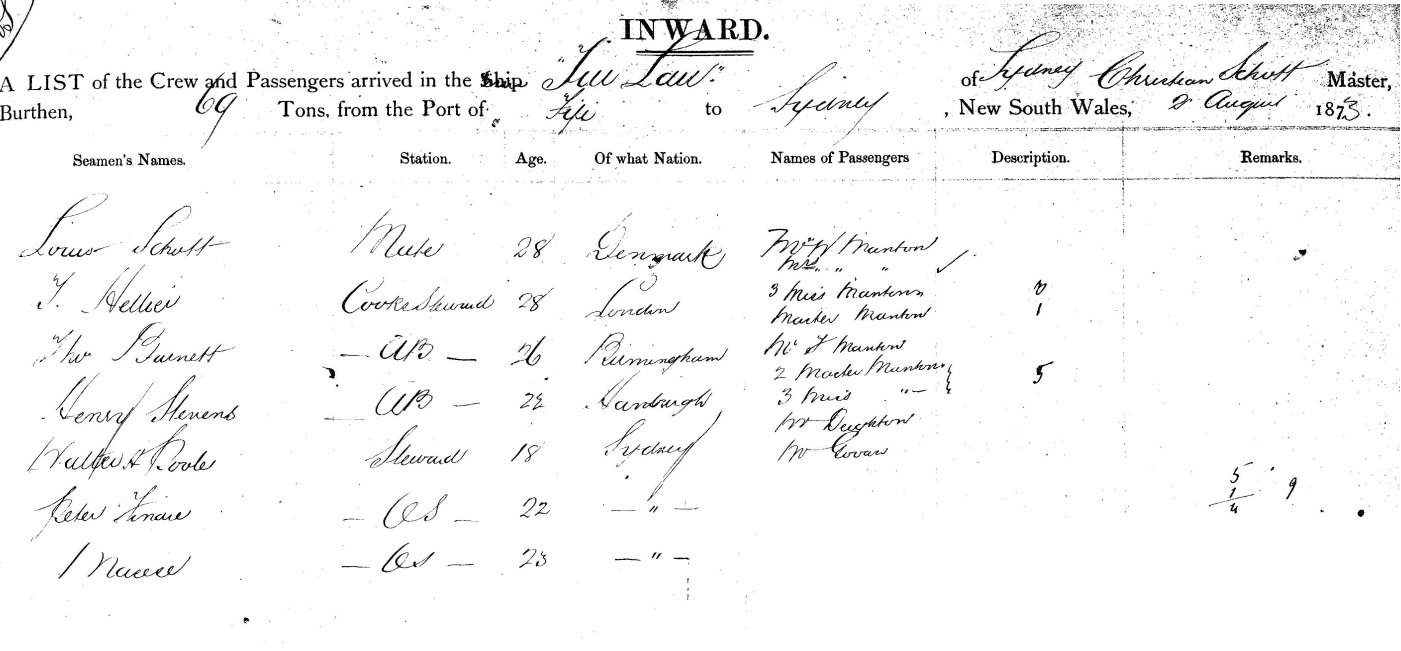 INWARD.
A LIST of the Crew and Passengers arrived in the Ship of Sydney Christian Schutt Master,
Burthen, 69 Tons, from the Port of Fiji to Sydney, New South Wales, 2 August 1873.
Seamen's Names. Station. Age. Of what Nation. Names of Passengers Description. Remarks.
Louis Schutt Mate 28 Denmark Mr W Manton
Mrs " "
T. Hellier Cook & Steward 28 London 3 Miss Mantons
Master Manton 1
Thos Barnett — AB — 26 Birmingham Mr F Manton
2 Master Manton 5
Henry Stevens — AB — 22 Hamburgh 3 Miss "—
Mr Deighton
Walter H Poole Steward 18 Sydney Mr Govan
5
1 9
4
Peter — OS — 22 — " —
— OS — 23 — " —